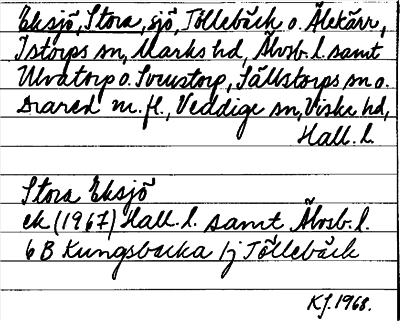 Eksjö, Stora, sjö, Töllebäck o. Älekärr,
Istorps sn, Marks hd, Älvsb. l. samt
Ulvatorp o. Svenstorp, Sällstorps sn o.
Drared m.fl., Veddige sn, Viske hd,
Hall. l.
Stora Eksjö
ek (1967) Hall. l. samt Älvsb. l.
6B Kungsbacka /j Töllebäck
KJ. 1968.